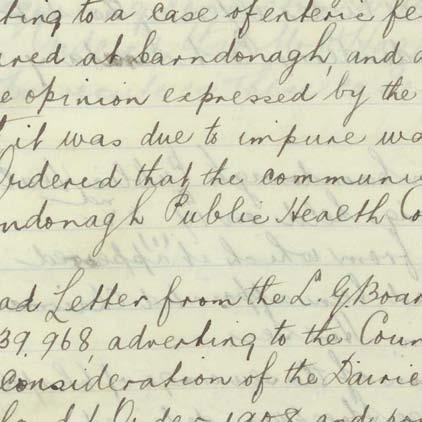 ting to a case of enteric fe
red at barndonagh, and a
e opinion expressed by the
t it was due to impure wa
Ordered that the communi
ndonagh Public Health Co
ad Letter from the L. G Boar
39.968, adverting to the Coun
consideration of the Dairie
Order 1908 and